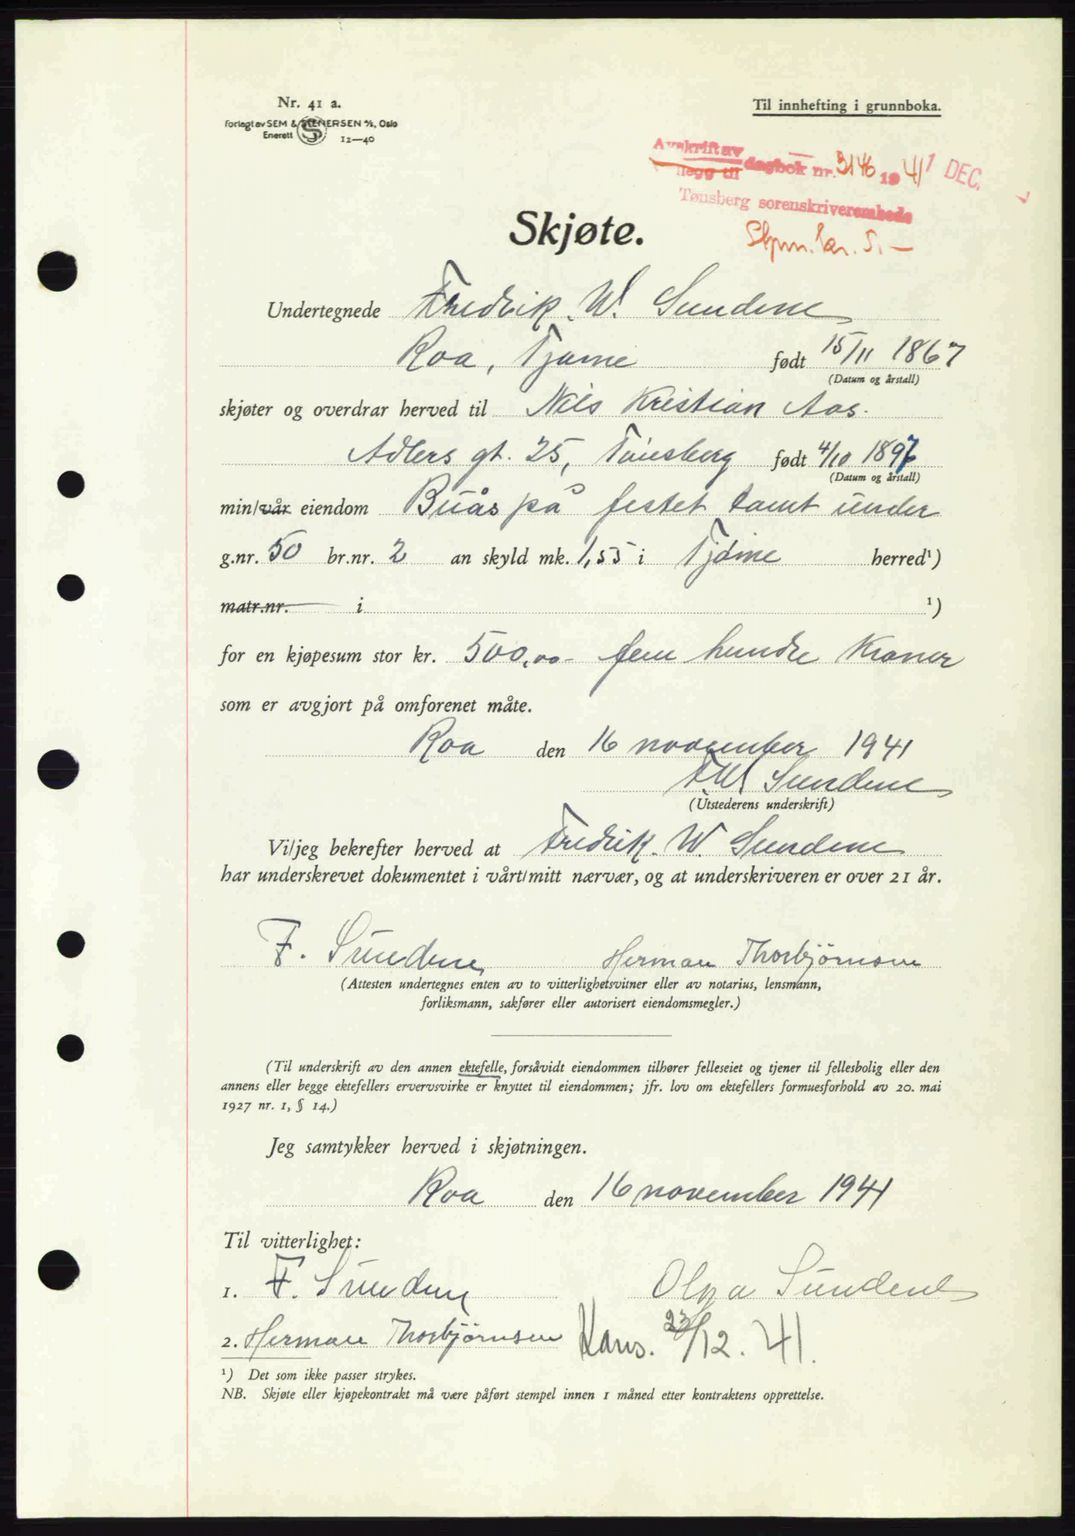 Nr. 41 a.
Forlagt av SEM & STENERSEN A/S, Oslo
Enerett 12—40
Til innhefting i grunnboka.
Avskrift av
legg til dagbok nr. 3146 1941 1 DEC.
Tønsberg sorenskriverembede
Stpm. kr. 5.—
Skjøte.
Undertegnede Fredrik. W. Sundene
Roa, Tjøme født 15/11 1867
(Datum og årstall)
skjøter og overdrar herved til Nils Kristian Aas.
Adlers gt. 25, Tønsberg født 4/10 1897
(Datum og årstall)
min/vår eiendom Buås på festet tomt under
g.nr. 50 br.nr. 2 an skyld mk. 1,55 i Tjøme herred¹)
matr.nr. i ¹)
for en kjøpesum stor kr. 500,00- fem hundre Kroner
som er avgjort på omforenet måte.
Roa den 16 november 1941
F.W. Sundene
(Utstederens underskrift)
Vi/jeg bekrefter herved at Fredrik. W. Sundene
har underskrevet dokumentet i vårt/mitt nærvær, og at underskriveren er over 21 år.
F. Sundene Herman Thorbjörnsen
(Attesten undertegnes enten av to vitterlighetsvitner eller av notarius, lensmann,
forliksmann, sakfører eller autorisert eiendomsmegler.)
(Til underskrift av den annen ektefelle, forsåvidt eiendommen tilhører felleseiet og tjener til fellesbolig eller den
annens eller begge ektefellers ervervsvirke er knyttet til eiendommen; jfr. lov om ektefellers formuesforhold av 20. mai
1927 nr. 1, § 14.)
Jeg samtykker herved i skjøtningen.
Roa den 16 november 1941
Til vitterlighet:
1. F. Sundene Olga Sundene
2. Herman Thorbjörnsen Kans. 23/12. 41.
¹) Det som ikke passer strykes.
NB. Skjøte eller kjøpekontrakt må være påført stempel innen 1 måned etter kontraktens opprettelse.